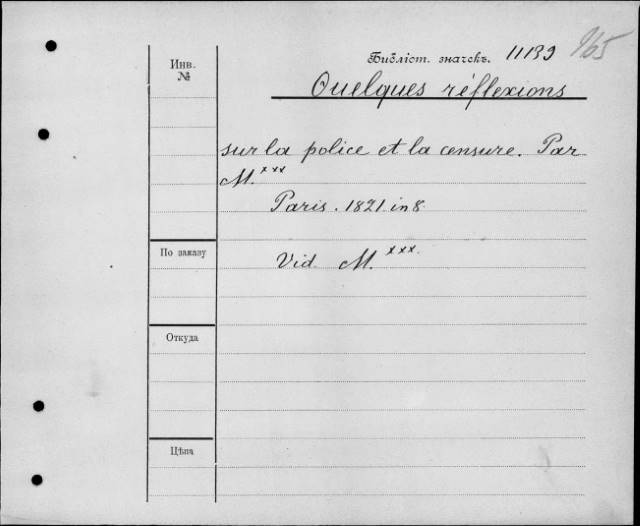 965
Библіот. значекъ. 11139
Инв.
№
Quelques réflexions
sur la police et la censure. Par
M. xxx
Paris. 1821. in 8.
По заказу
Vid. M. xxx.
Откуда
Цѣна